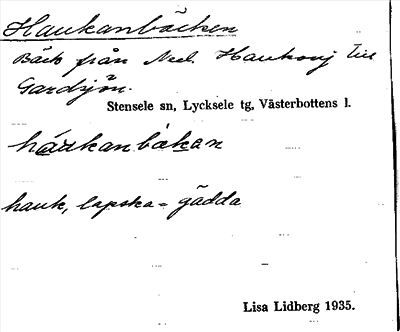 Haukanbäcken
Bäck från Ned. Haukovj till
Gardsjön.
Stensele sn, Lycksele tg, Västerbottens l.
háukanbäkan
hauk, lapska = gädda
Lisa Lidberg 1935.